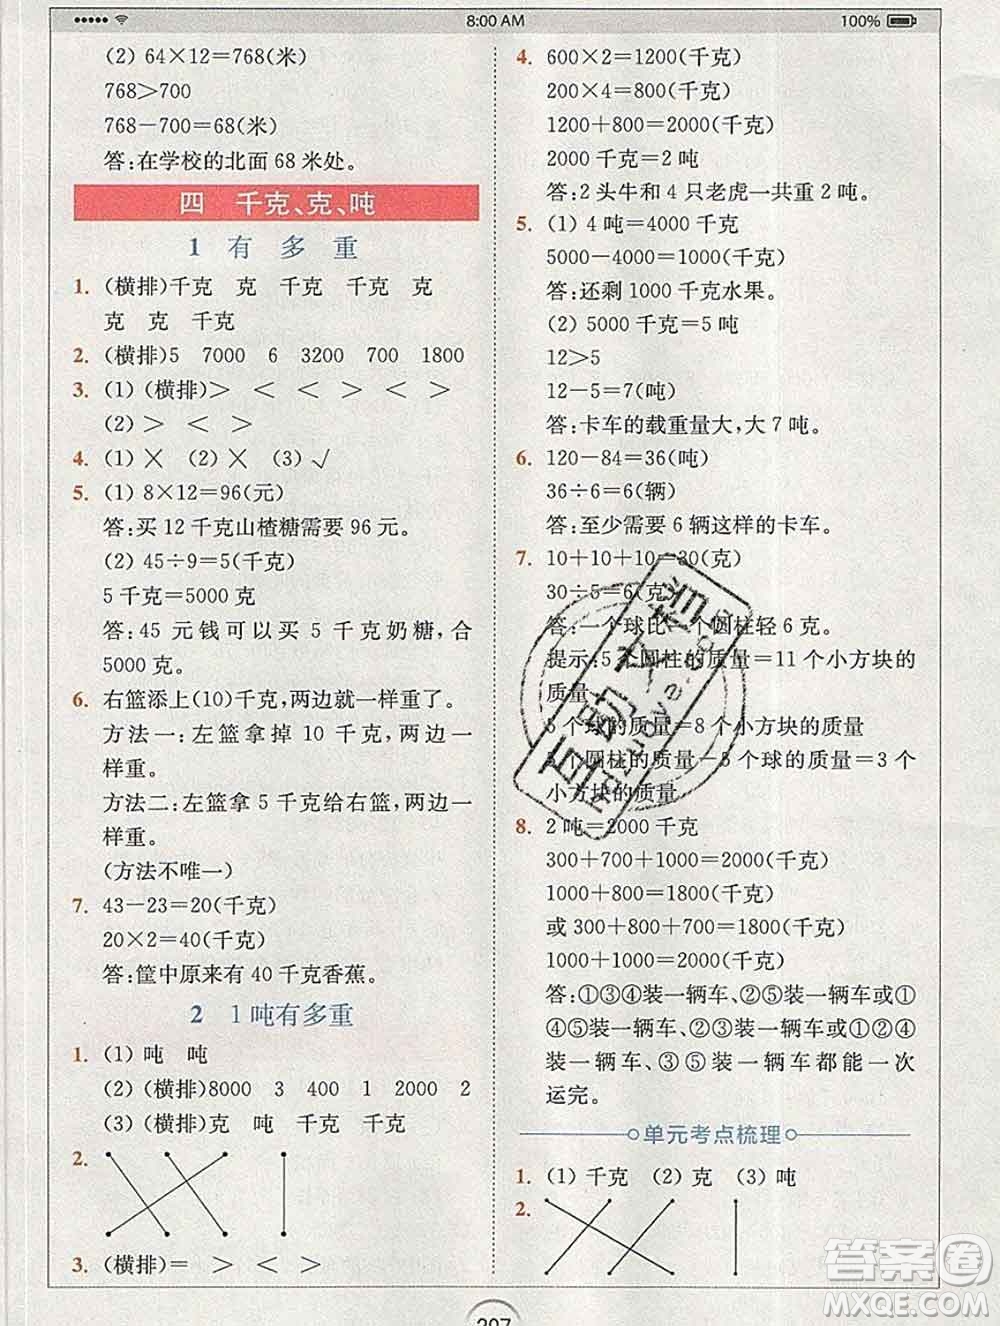 8:00 AM
100%
(2) 64×12=768(米)
768>700
768-700=68(米)
答:在学校的北面 68 米处。
四 千克、克、吨
1 有 多 重
1. (横排)千克 克 千克 千克 克
克 克 千克
2. (横排)5 7000 6 3200 700 1800
3. (1) (横排)> < < > > <
(2) > < >
4. (1) × (2) × (3) √
5. (1) 8×12=96(元)
答:买 12 千克山楂糖需要 96 元。
(2) 45÷9=5(千克)
5 千克=5000 克
答:45 元钱可以买 5 千克奶糖,合
5000 克。
6. 右篮添上(10)千克,两边就一样重了。
方法一:左篮拿掉 10 千克,两边一
样重。
方法二:左篮拿 5 千克给右篮,两边
一样重。
(方法不唯一)
7. 43-23=20(千克)
20×2=40(千克)
答:筐中原来有 40 千克香蕉。
2 1 吨有多重
1. (1) 吨 吨
(2) (横排)8000 3 400 1 2000 2
(3) (横排)克 吨 千克 千克
2.
3. (横排)= > < >
4. 600×2=1200(千克)
200×4=800(千克)
1200+800=2000(千克)
2000 千克=2 吨
答:2 头牛和 4 只老虎一共重 2 吨。
5. (1) 4 吨=4000 千克
5000-4000=1000(千克)
答:还剩 1000 千克水果。
(2) 5000 千克=5 吨
12>5
12-5=7(吨)
答:卡车的载重量大,大 7 吨。
6. 120-84=36(吨)
36÷6=6(辆)
答:至少需要 6 辆这样的卡车。
7. 10+10+10=30(克)
30÷5=6(克)
答:一个球比一个圆柱轻 6 克。
提示:5 个圆柱的质量=11 个小方块的
质量
5 个球的质量=8 个小方块的质量
5 个圆柱的质量-5 个球的质量=3 个
小方块的质量
8. 2 吨=2000 千克
300+700+1000=2000(千克)
1000+800=1800(千克)
或 300+800+700=1800(千克)
1000+1000=2000(千克)
答:①③④装一辆车、②⑤装一辆车或①
④⑤装一辆车、②③装一辆车或①②④
装一辆车、③⑤装一辆车都能一次
运完。
单元考点梳理
1. (1) 千克 (2) 克 (3) 吨
2.
207
互助文档
答案圈
MXQE.COM